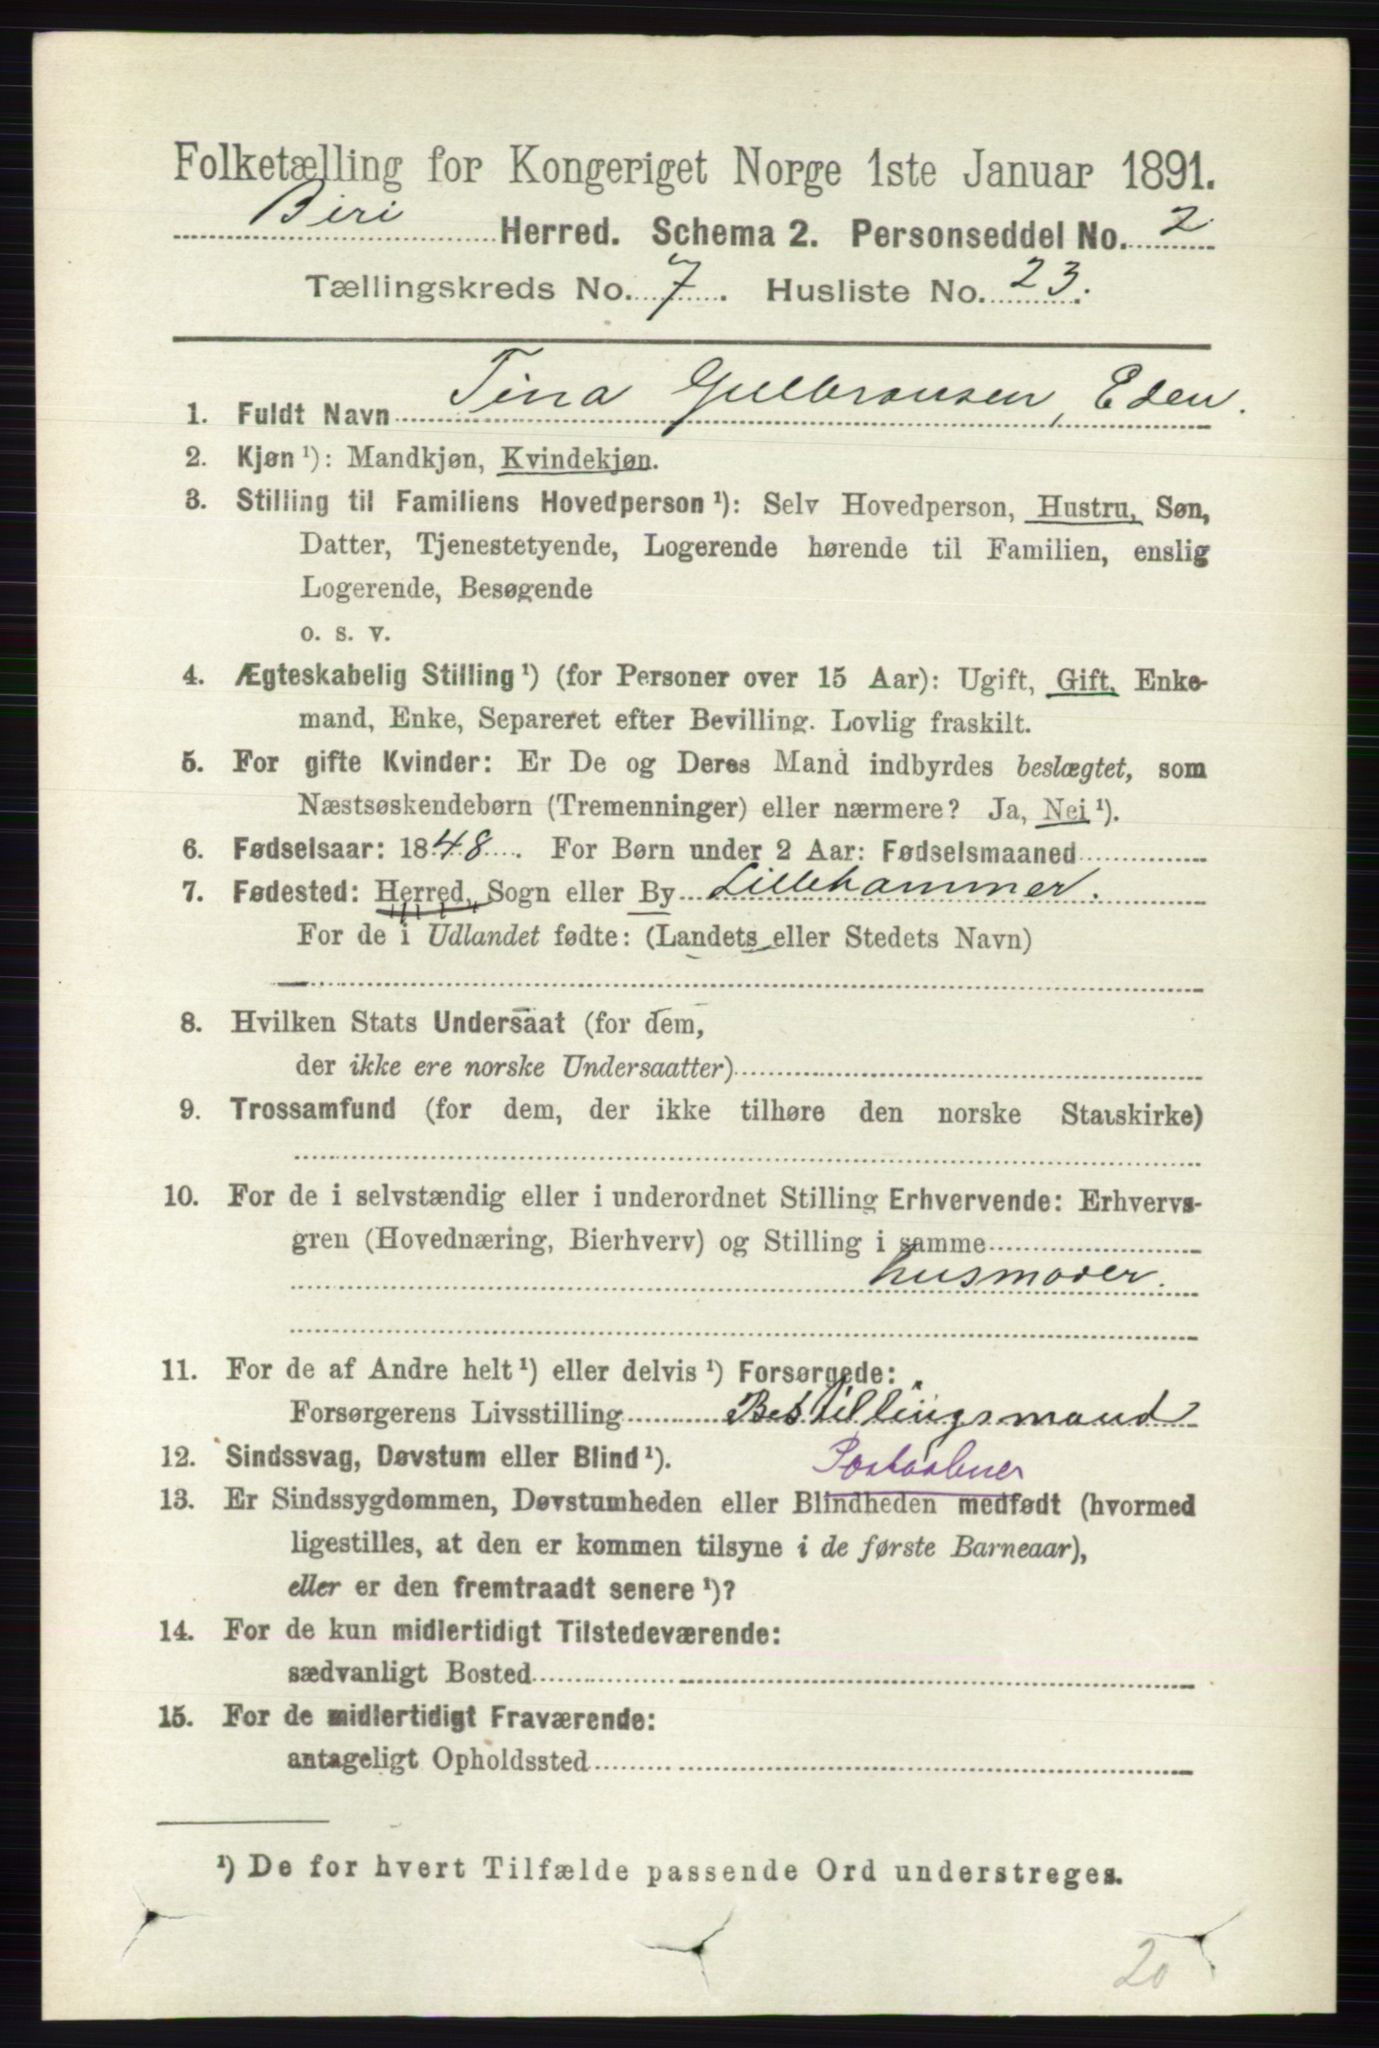 Folketælling for Kongeriget Norge 1ste Januar 1891.
Biri Herred. Schema 2. Personseddel No. 2
Tællingskreds No. 7. Husliste No. 23.
1. Fuldt Navn Tina Gulbransen, Eden.
2. Kjøn ¹): Mandkjøn, Kvindekjøn.
3. Stilling til Familiens Hovedperson ¹): Selv Hovedperson, Hustru, Søn,
Datter, Tjenestetyende, Logerende hørende til Familien, enslig
Logerende, Besøgende
o. s. v.
4. Ægteskabelig Stilling ¹) (for Personer over 15 Aar): Ugift, Gift, Enke-
mand, Enke, Separeret efter Bevilling. Lovlig fraskilt.
5. For gifte Kvinder: Er De og Deres Mand indbyrdes beslægtet, som
Næstsøskendebørn (Tremenninger) eller nærmere? Ja, Nei ¹).
6. Fødselsaar: 1848. For Børn under 2 Aar: Fødselsmaaned
7. Fødested: Herred, Sogn eller By Lillehammer.
For de i Udlandet fødte: (Landets eller Stedets Navn)
8. Hvilken Stats Undersaat (for dem,
der ikke ere norske Undersaatter)
9. Trossamfund (for dem, der ikke tilhøre den norske Statskirke)
10. For de i selvstændig eller i underordnet Stilling Erhvervende: Erhvervs-
gren (Hovednæring, Bierhverv) og Stilling i samme
husmoder.
11. For de af Andre helt ¹) eller delvis ¹) Forsørgede:
Forsørgerens Livsstilling Bestillingsmand
12. Sindssvag, Døvstum eller Blind ¹). Postaabner
13. Er Sindssygdommen, Døvstumheden eller Blindheden medfødt (hvormed
ligestilles, at den er kommen tilsyne i de første Barneaar),
eller er den fremtraadt senere ¹)?
14. For de kun midlertidigt Tilstedeværende:
sædvanligt Bosted
15. For de midlertidigt Fraværende:
antageligt Opholdssted
¹) De for hvert Tilfælde passende Ord understreges.
20